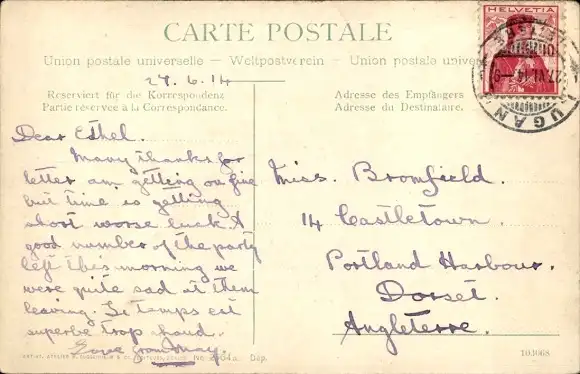 CARTE POSTALE
Union postale universelle – Weltpostverein – Union postale univers
27.6.14
Reserviert für die Korrespondenz
Partie réservée à la Correspondance.
Adresse des Empfängers
Adresse du Destinataire.
HELVETIA
LUGANO
27.VI.14.–9
Dear Ethel.
Many thanks for
letter am getting on fine
but time is getting
short worse luck. A
good number of the party
left this morning we
were quite sad at them
leaving. Le temps est
superbe trop chaud.
Love from May.
Miss. Bromfield.
14 Castletown.
Portland Harbour.
Dorset.
Angleterre.
No. Dép.
103068